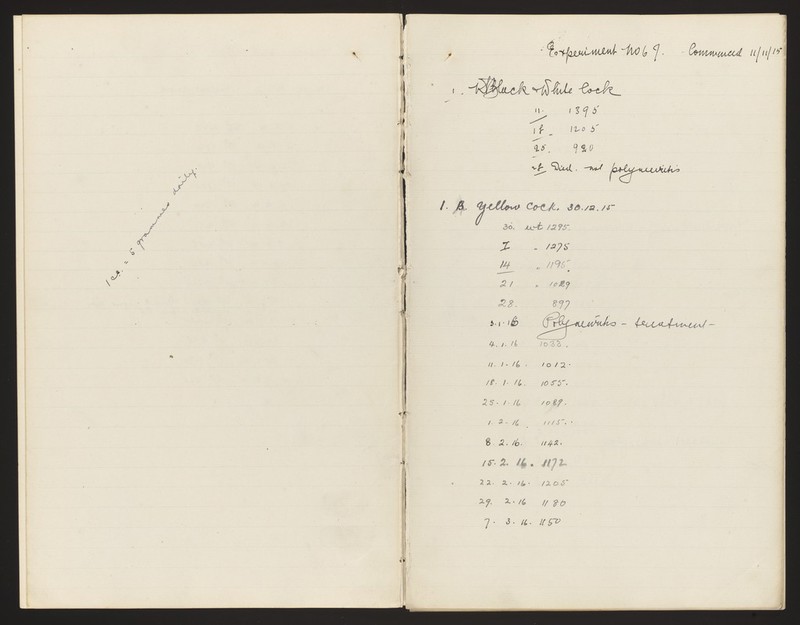 1 cc. = 5 grammes daily.
Experiment No 69. Commenced 11/11/15
1. Black & White Cock
11. 1395
18. 1205
25. 920
Died. not polyneuritis
1. B Yellow Cock. 30.12.15
30. wt 1295.
7 " 1275
14 " 1195.
21 " 1029
28. 897
3.1.16 Polyneuritis - treatment -
4.1.16
11.1.16. 1012.
18.1.16. 1055.
25.1.16 1088.
1.2.16. 1115.
8.2.16. 1142.
15.2.16. 1172
22.2.16. 1205
29.2.16 1180
7.3.16. 1150